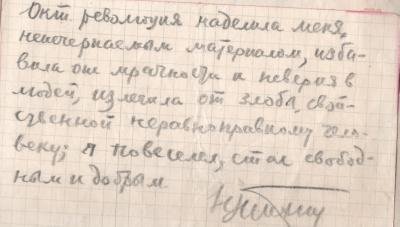 Окт. революция наделила меня,
неисчерпаемым материалом, изба-
вила от мрачности и неверия в
людей, излечила от злобы, свой-
ственной неравноправному чело-
веку; я повеселел, стал свобод-
ным и добрым